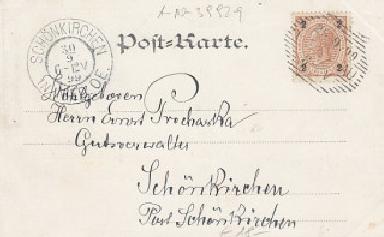 A-NÖ 39929
Post-Karte.
SCHÖNKIRCHEN
30
9
99
2 2
2 2
Wohlgeboren
Herrn Ernst Prochaska
Gutsverwalter
Schönkirchen
Post Schönkirchen